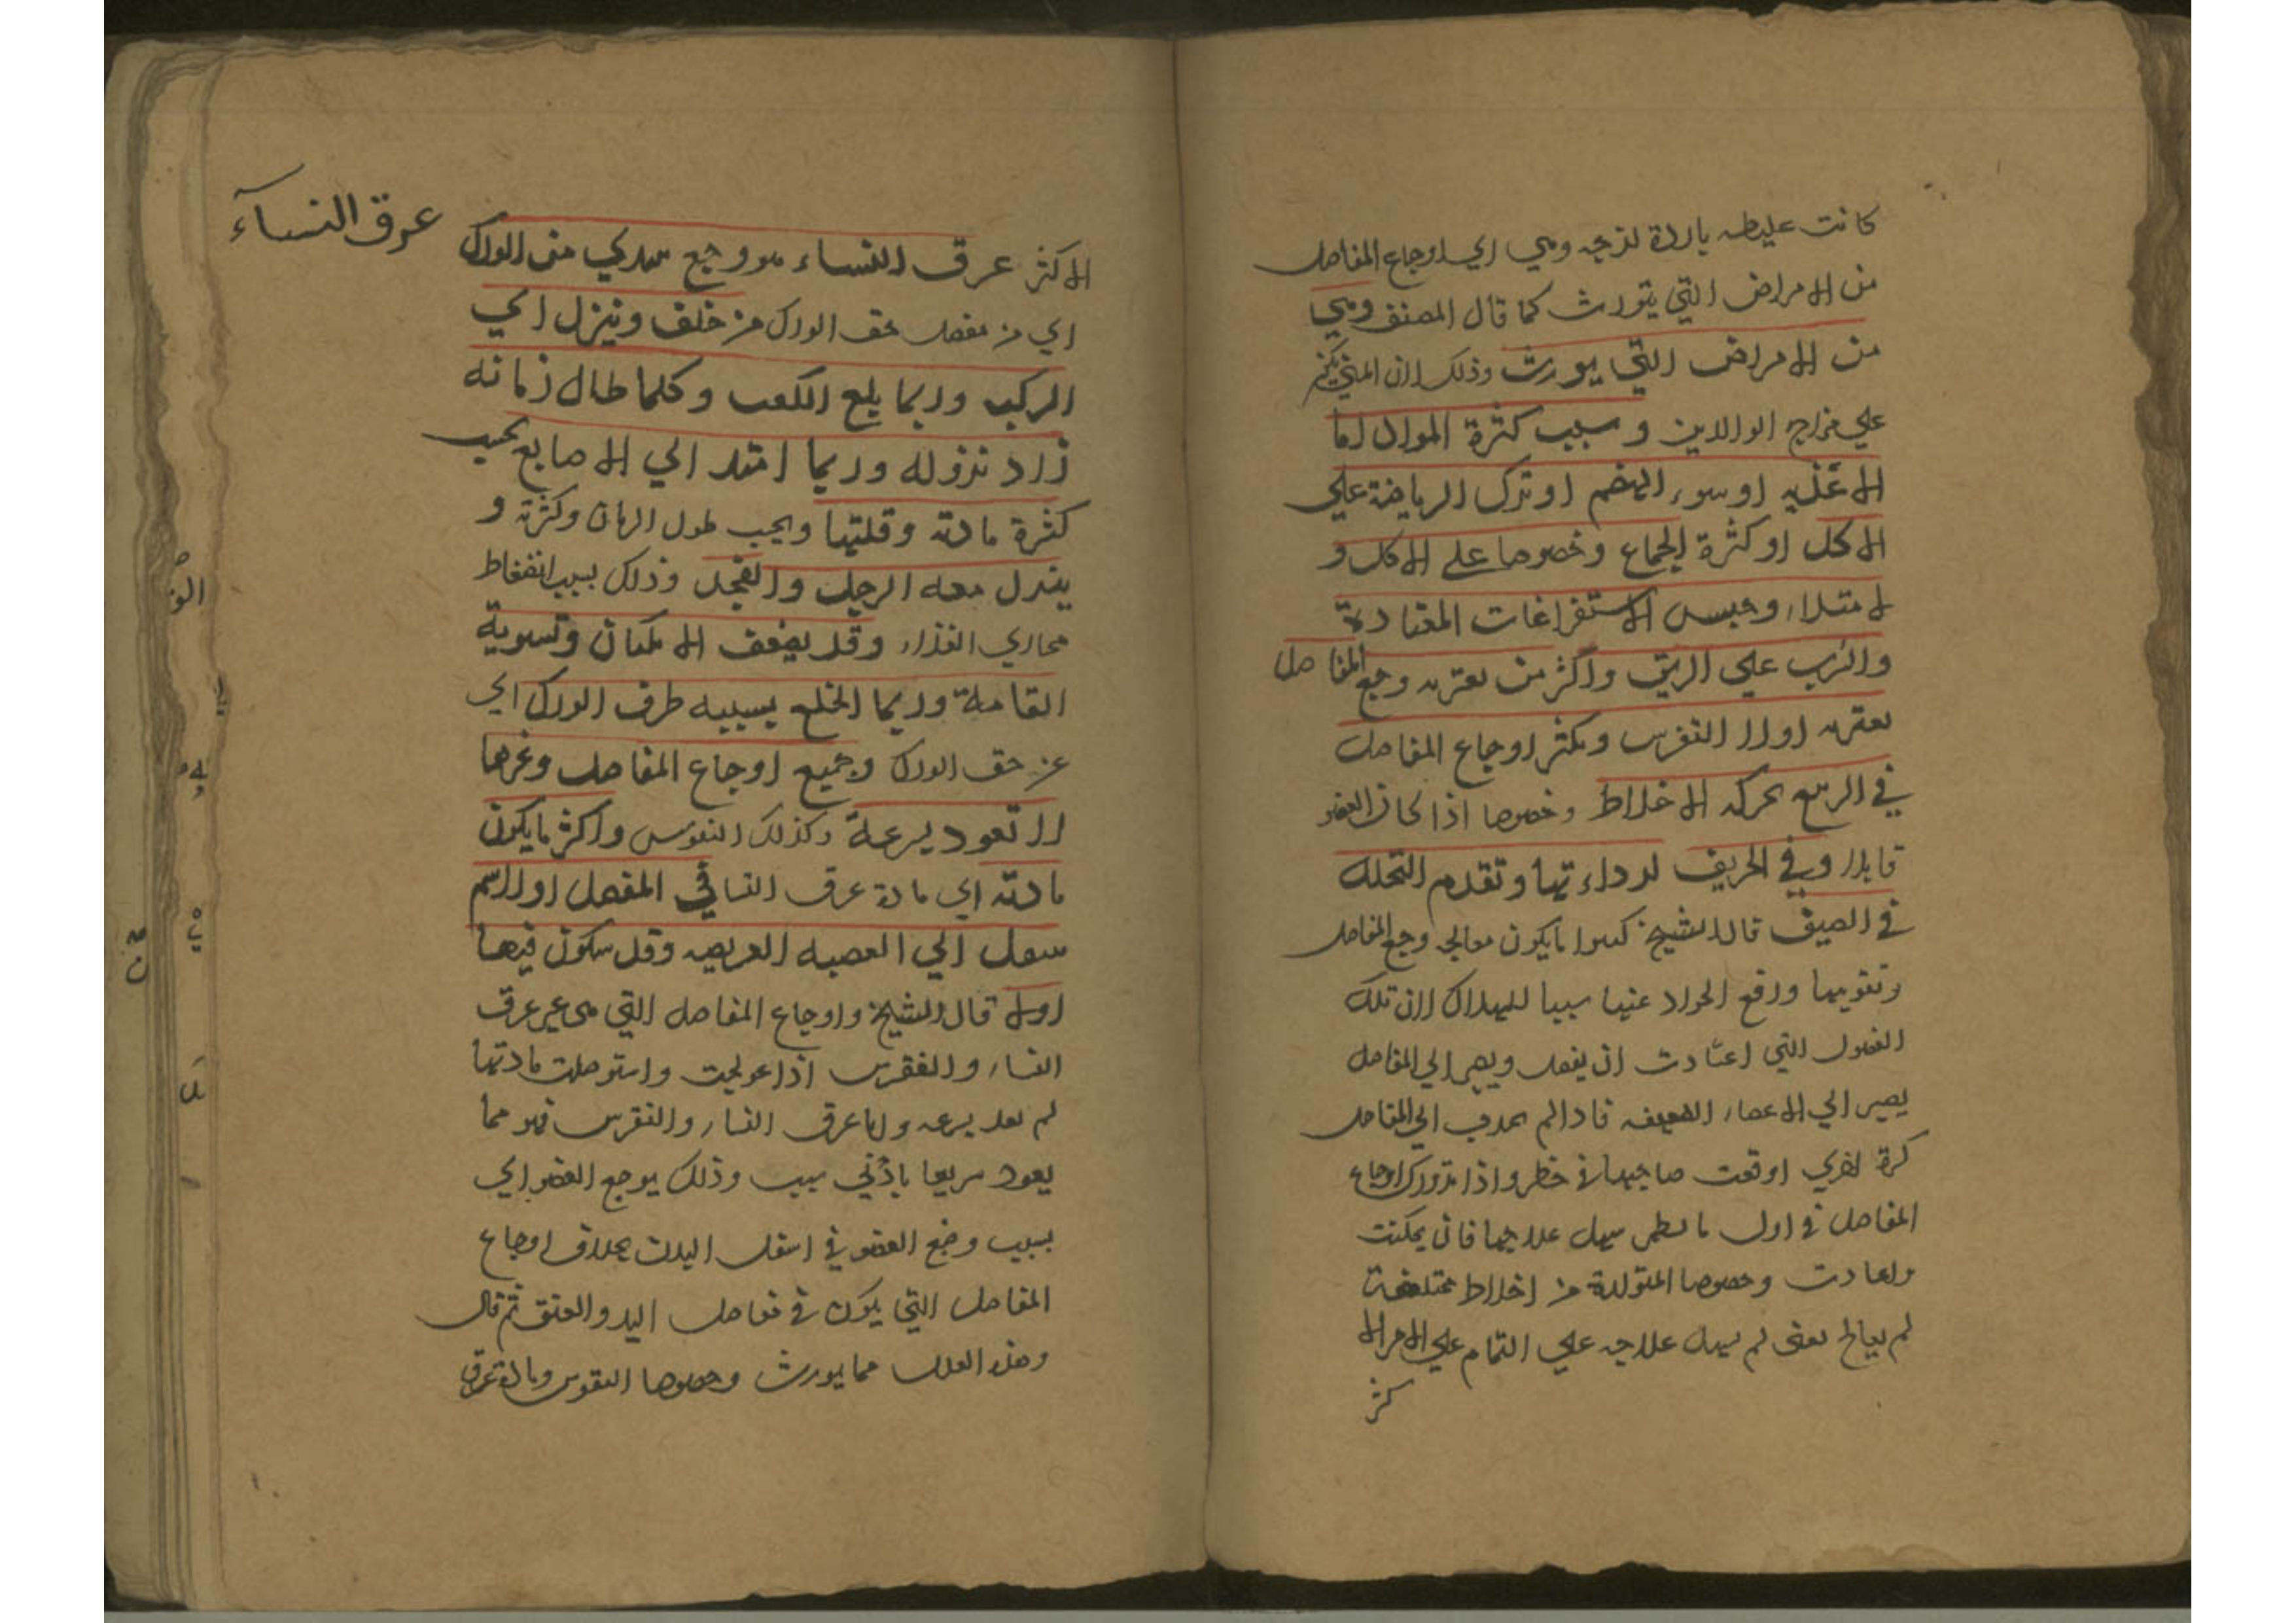 كانت غليظه باردة لزجه وهي اي اوجاع المفاصل
من الامراض التي يتورث كما قال المصنف وهي
من الامراض التي يورث وذلك لان المني
علي مزاج الوالدين وسبب كثرة المواد اما
الاغذيه او سوء الهضم او ترك الرياضة علي
الاكل او كثرة الجماع وخصوصا علي الاكل و
لامتلاء وحبس الاستفراغات المعتادة
والشرب علي الريق واكثر من يعتريه وجع المفاصل
يعتريه اولا النقرس ويكثر اوجاع المفاصل
في الربيع لحركه الاخلاط وخصوصا اذا كان العضو
قابلا وفي الخريف لرداءتها وتقدم التحلل
في الصيف قال الشيخ كثيرا ما يكون معالجه وجع المفاصل
وتقويتها ودفع المواد عنها سببا للهلاك لان تلك
الفضول التي اعتادت ان يفصل ويصير الي المفاصل
يصير الي الاعضاء الضعيفه فاذا لم الي المفاصل
كرة اخري اوقعت صاحبها في خطر واذا تدورك اوجاع
المفاصل في اول ما يظهر سهل علاجها فان تمكنت
واعتادت وخصوصا المتولدة من اخلاط مختلفة
لم يعالج يعني لم يسهل علاجه علي التمام علي الامر الا
كثر
عرق النساء
الاكثر عرق النساء هو وجع يبتدي من الورك
اي من مفصل حق الورك من خلف وينزل الي
الركبه وربما بلغ الكعب وكلما طال زمانه
زاد نزوله وربما امتد الي الاصابع بحسب
كثرة مادته وقلتها وبحسب طول الزمان وكثرته و
يهزل معه الرجل والفخذ وذلك بسبب انضغاط
مجاري الغذاء وقد يضعف الامكان وتسوية
القامة وربما انخلع بسببه طرف الورك اي
عن حق الورك وجميع اوجاع المفاصل ونحوها
لا تعود بسرعة وكذلك النقرس واكثر ما يكون
مادته اي مادة عرق النسا في المفصل اولا ثم
ينتقل الي العصبه العريضه وقد يكون فيها
اولا قال الشيخ واوجاع المفاصل التي هي غير عرق
النساء والنقرس اذا عولجت واستوصلت مادتها
لم يعد بسرعه واما عرق النساء والنقرس فهو مما
يعود سريعا بادني سبب وذلك لوضع العضو اي
بسبب وضع العضو في اسفل البدن بخلاف اوجاع
المفاصل التي يكون في مفاصل اليد والعنق ثم قال
وهذه العلل مما يورث وخصوصا النقرس ومادة عرق